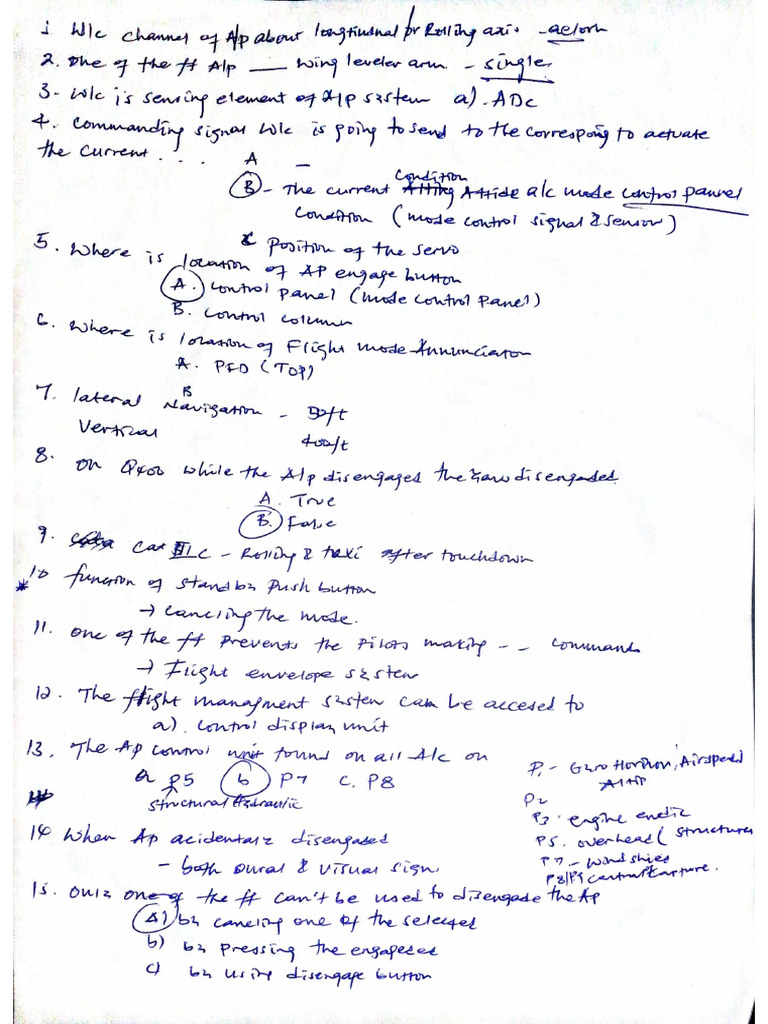 1. W/c channel of A/p about longtiudnal for Rolling axis - aelorn
2. One of the ff A/p ___ wing leveler arm - single
3 - w/c is sensing element of A/p system a) . ADC
4. Commanding signal w/c is going to send to the correspoing to actuate
the current . . . A -
Condition
B - The current a/c mode control pannel
Condition (mode control signal & sensor)
C Position of the servo
5. Where is location of AP engage button
A. Control panel (mode control panel)
B. Control column
6. Where is location of Flight mode Annunciator
A. PFD (TOP)
B
7. lateral Navigation - 50ft
Vertical 400ft
8. On Q400 while the A/p disengages the yaw disengaded
A. True
B. False
9. Cat III C - Rolling & taxi after touchdown
* 10 function of standby push button
→ Canceling the mode.
11. One of the ff prevents the pilots making - - commands
→ Flight envelope system
12. The flight managment system can be accesed to
a) . Control display unit
13. The Ap control unit found on all A/c on
a P5 b P7 c. P8
Structural Hydraulic
P1 - Gyro Horizon, Airspeed
P2
P3. engine
P5. overhead (structures
P7 - windshied
P8/P9
14 When Ap acidentaly disengased
- both oural & visual sign
15. Quiz one of the ff can't be used to disengade the AP
A) by canceling one of the selected
b) by pressing the engageded
c) by using disengage button